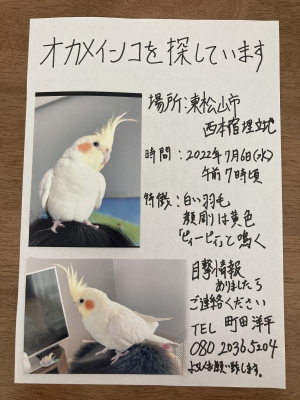 オカメインコを探しています
場所:東松山市
西本宿埋立地
時間:2022年7月6日(水)
午前7時頃
特徴:白い羽毛
顔周りは黄色
「ピィーピィー」って鳴く
目撃情報
ありましたら
ご連絡ください
TEL 町田洋平
080 2036 5204
よろしくお願い致します。